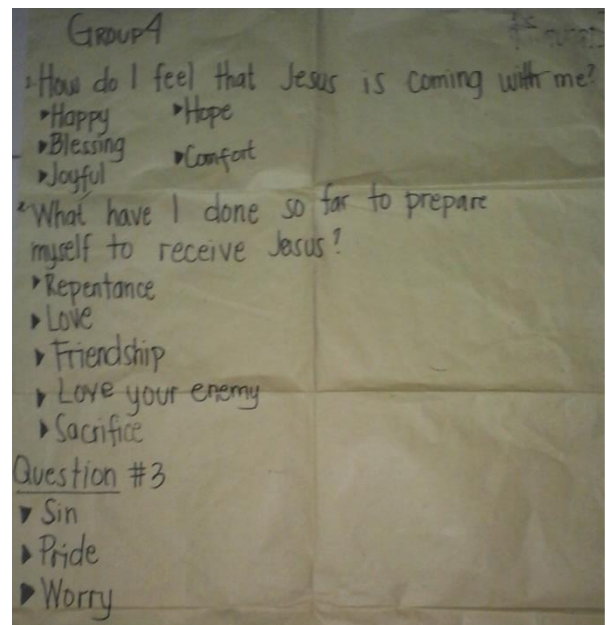 GROUP4
1. How do I feel that Jesus is coming with me?
▸Happy ▸Hope
▸Blessing
▸Comfort
▸Joyful
2. What have I done so far to prepare
myself to receive Jesus?
▸Repentance
▸Love
▸Friendship
▸Love your enemy
▸Sacrifice
Question #3
▸Sin
▸Pride
▸Worry